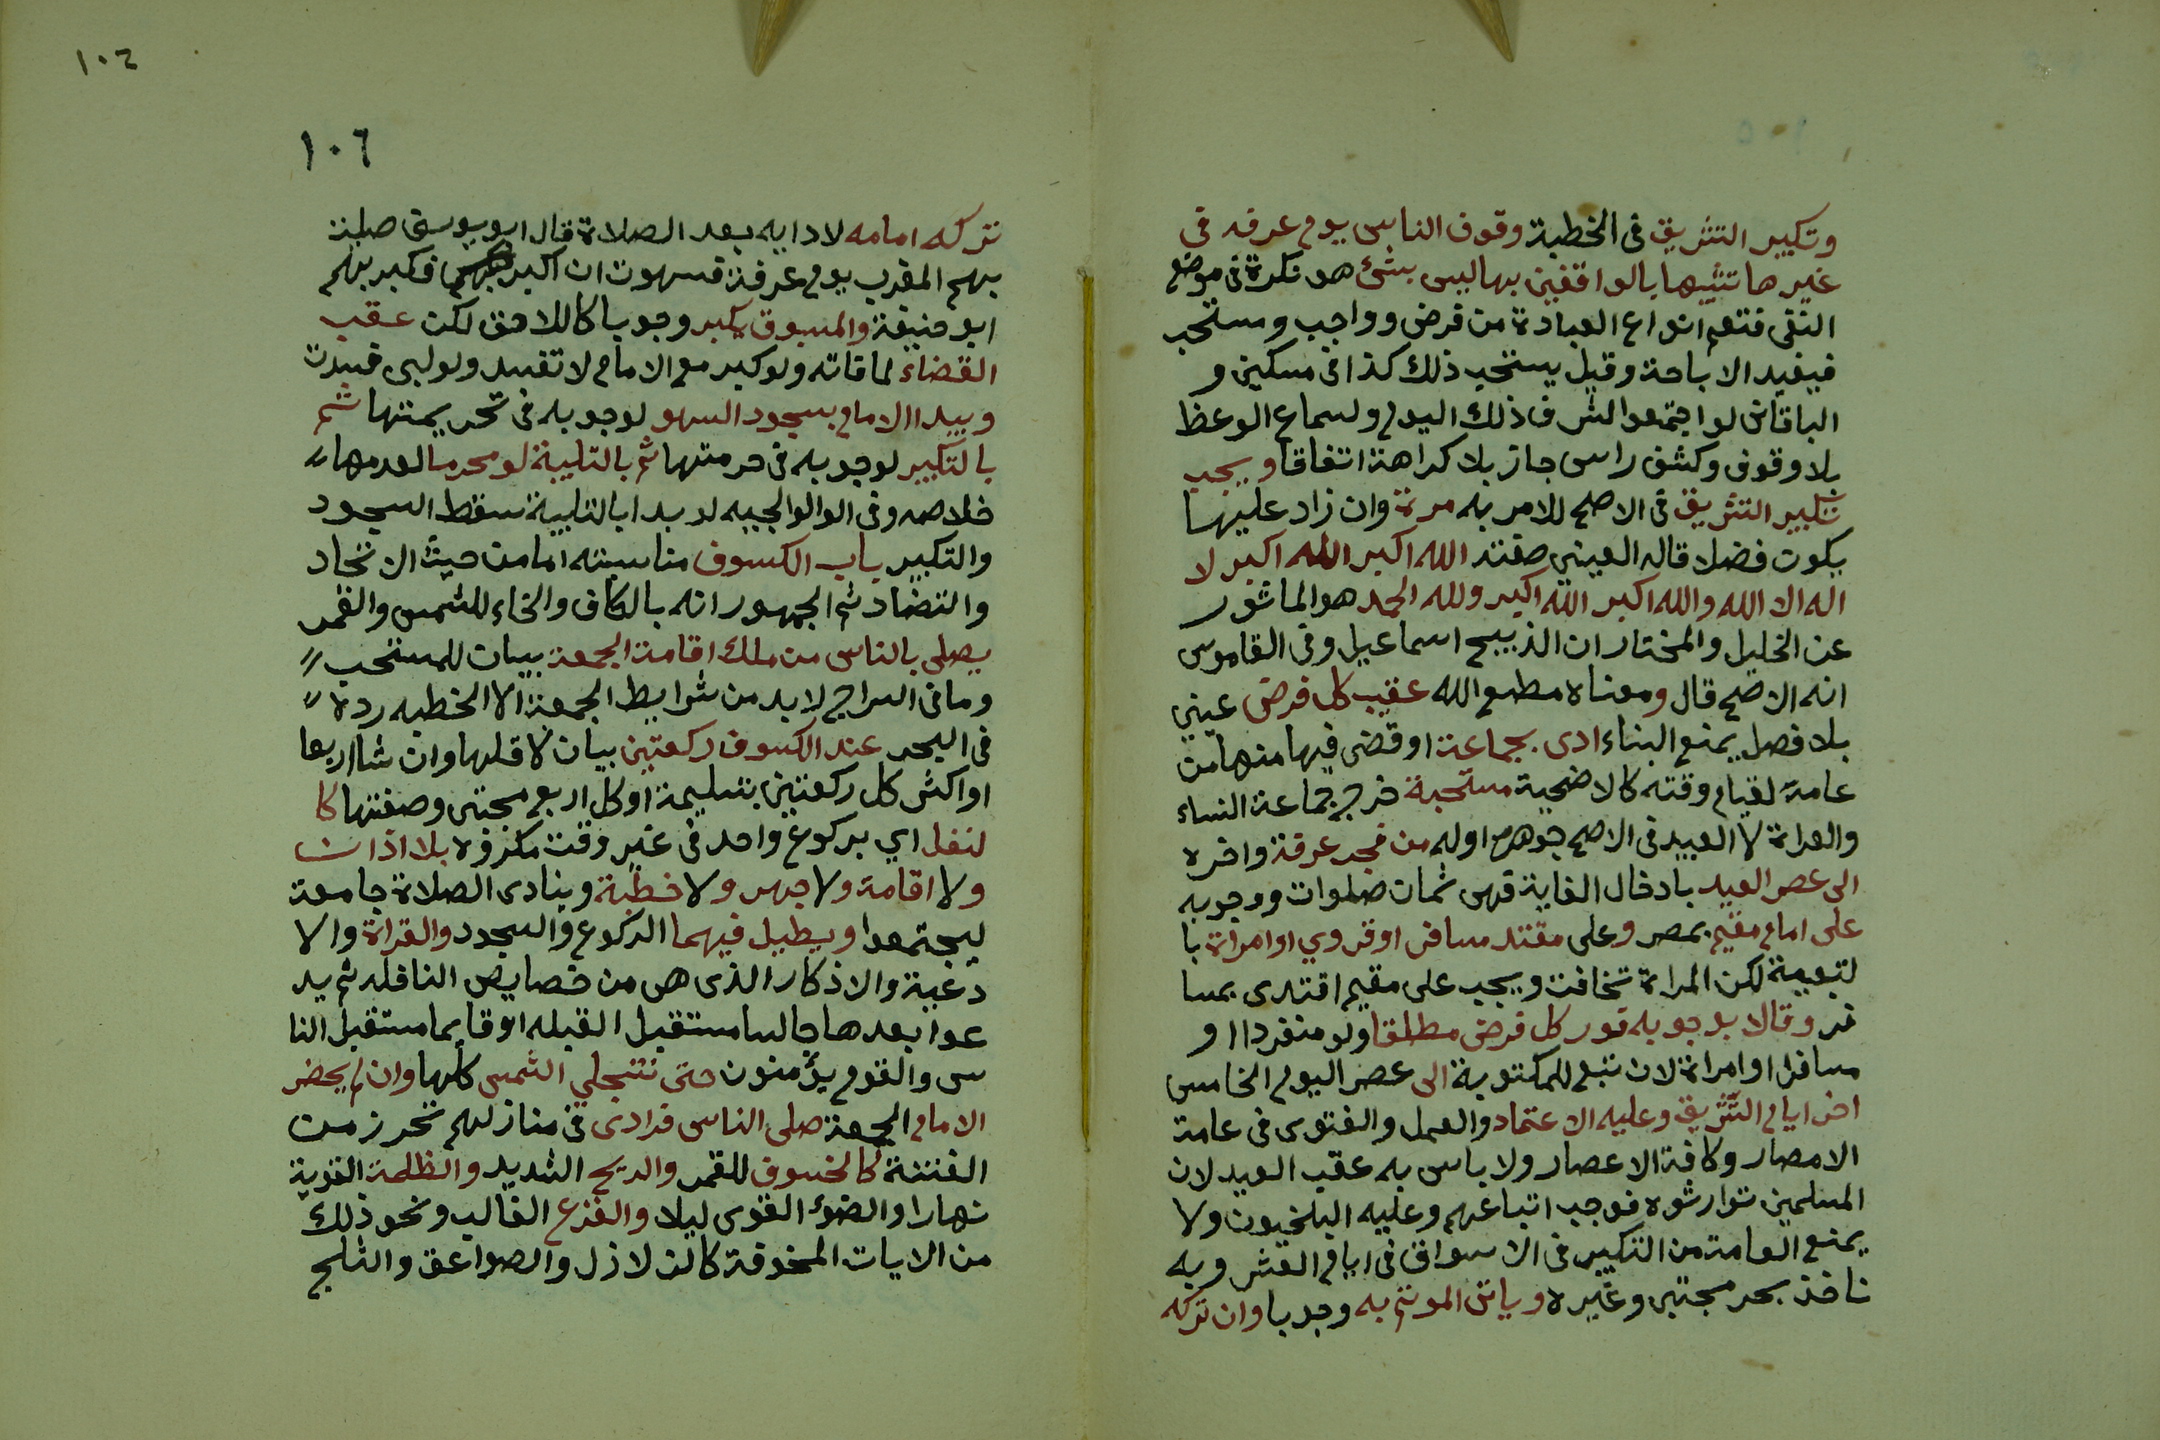 وتكبير التشريق فى الخطبة وقوف الناس يوم عرفه فى
غيرها تشبيها بالواقفين بها ليس بشئ هو نكرة فى موضع
النفى فتعم انواع العبادة من فرض وواجب ومستحب
فيفيد الاباحة وقيل يستحب ذلك كذا فى مسكين و
الباقانى لو اجتمعوا لشرف ذلك اليوم ولسماع الوعظ
بلا وقوف وكشف راس جاز بلا كراهة اتفاقا ويجب
تكبير التشريق فى الاصح للامر به مرة وان زاد عليها
يكون فضلا قاله العينى صفته الله اكبر الله اكبر لا
اله الا الله والله اكبر الله اكبر ولله الحمد هو الماثور
عن الخليل والمختار ان الذبيح اسماعيل وفى القاموس
انه الاصح قال ومعناه مطيع الله عقيب كل فرض عيني
بلا فصل يمنع البناء ادى بجماعة او قضى فيها منها من
عامه لقيام وقته كالاضحية مستحبة خرج جماعة النساء
والعراة لا العبيد فى الاصح جوهره اوله من فجر عرفة واخره
الى عصر العيد بادخال الغاية فهى ثمان صلوات ووجوبه
على امام مقيم بمصر وعلى مقتد مسافر او قروي او امراة با
لتبعية لكن المراة تخافت ويجب على مقيم اقتدى بمسا
فر وقالا بوجوبه فور كل فرض مطلقا ولو منفردا او
مسافرا او امراة لانه تبع للمكتوبة الى عصر اليوم الخامس
اخر ايام التشريق وعليه الاعتماد والعمل والفتوى فى عامة
الامصار وكافة الاعصار ولا باس به عقب العيد لان
المسلمين توارثوه فوجب اتباعهم وعليه البلخيون ولا
يمنع العامة من التكبير فى الاسواق فى ايام العشر وبه
ناخذ بحر مجتبى وغيره وياتى الموتم به وجوبا وان تركه
١٠٦
١٠٦
تركه امامه لادايه بعد الصلاة قال ابو يوسف صليت
بهم المغرب يوم عرفة فسهوت ان اكبر فكبر بهم
ابو حنيفة والمسبوق يكبر وجوبا كاللاحق لكن عقب
القضاء لما فاته ولو كبر مع الامام لا تفسد ولو لبى فسدت
ويبدا الامام بسجود السهو لوجوبه فى تحريمتها ثم
بالتكبير لوجوبه فى حرمتها ثم بالتلبية لو محرما لعدمها
خلاصه وفى الوالوالجيه لو بدا بالتلبية سقط السجود
والتكبير باب الكسوف مناسبته اما من حيث الاتحاد
والتضاد ثم الجمهور انه بالكاف والخاء للشمس والقمر
يصلى بالناس من ملك اقامة الجمعة بيان للمستحب
وما فى السراج لا بد من شرايط الجمعة الا الخطبه رده
فى البحر عند الكسوف ركعتين بيان لاقلها وان شا اربعا
او اكثر كل ركعتين بتسليمة او كل اربع مجتبى وصفتها كا
لنفل اي بركوع واحد فى غير وقت مكروه بلا اذان
ولا اقامة ولا جهر ولا خطبة وينادى الصلاة جامعة
ليجتمعوا ويطيل فيهما الركوع والسجود والقراة والا
دعية والاذكار الذى هى من خصايص النافله ثم يد
عوا بعدها جالسا مستقبل القبله او قايما مستقبل النا
س والقوم يؤمنون حتى تنجلي الشمس كلها وان لم يحضر
الامام الجمعة صلى الناس فرادى فى منازلهم تحرز من
الفتنة كالخسوف للقمر والريح الشديد والظلمة القوية
نهارا والضوء القوى ليلا والفزع الغالب ونحو ذلك
من الايات المخوفة كالزلازل والصواعق والثلج